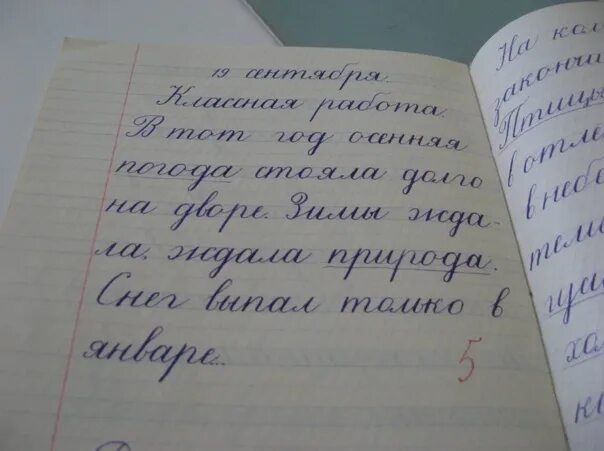 19 сентября.
Классная работа.
В тот год осенняя
погода стояла долго
на дворе. Зимы жда-
ла, ждала природа.
Снег выпал только в
январе...
5
На кол
закончи
Птицы
в отле
в небе
теми
гуси
хол